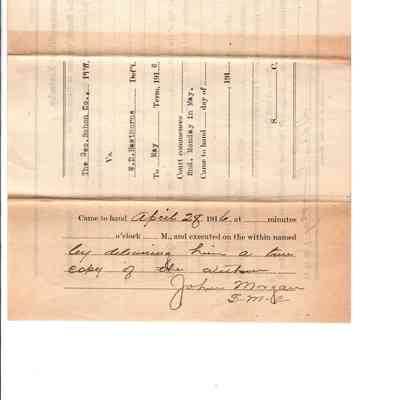 The Geo. Bohon Co., Plff.
Vs.
W.D. Hawthorne Def't.
To May Term, 1916
Court commences
2nd. Monday in May.
Came to hand day of
191
S. C.
Came to hand April 28 1916, at minutes
o'clock M., and executed on the within named
by delivering him a true
copy of the within
John Morgan